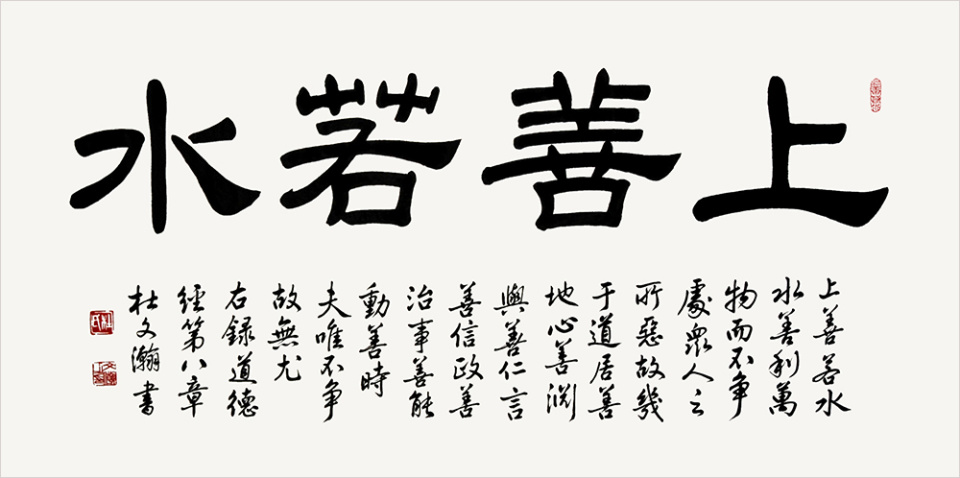 上善若水
上善若水
水善利萬
物而不争
處衆人之
所惡故幾
于道居善
地心善渊
與善仁言
善信政善
治事善能
動善時
夫唯不争
故無尤
右録道德
經第八章
杜文瀚書
杜氏